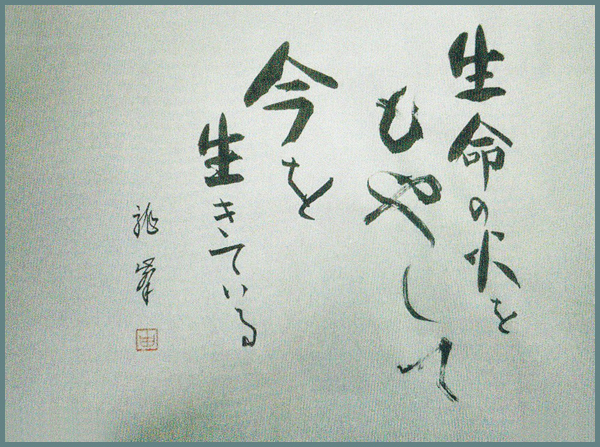 生命の火を
もやして
今を
生きている